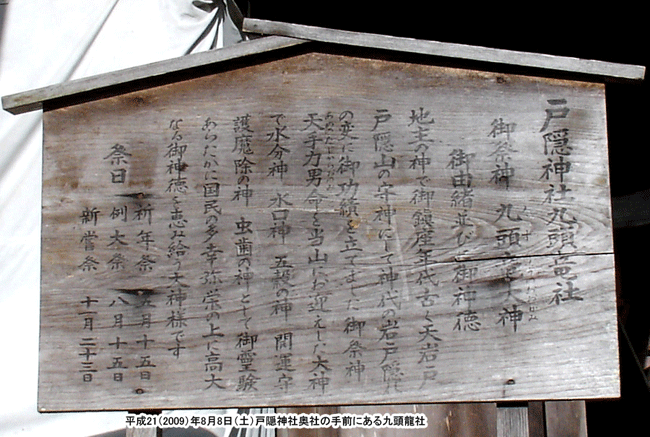 戸隠神社九頭竜社
御祭神 九頭竜大神
御由緒並び御神徳
地主の神で御鎮座年代古く天岩戸
戸隠山の守神にして神代の岩戸隠れ
の変に御功績を立てました御祭神
天手力男命を当山にお迎えした大神
で水分神 水口神 五穀の神 開運守
護魔除の神 虫歯の神として御霊験
あらたかに国民の多幸弥栄の上に高大
なる御神徳を恵み給う大神様です
祭日 祈年祭 五月十五日
例大祭 八月十五日
新嘗祭 十一月二十三日
平成21(2009)年8月8日(土)戸隠神社奥社の手前にある九頭龍社